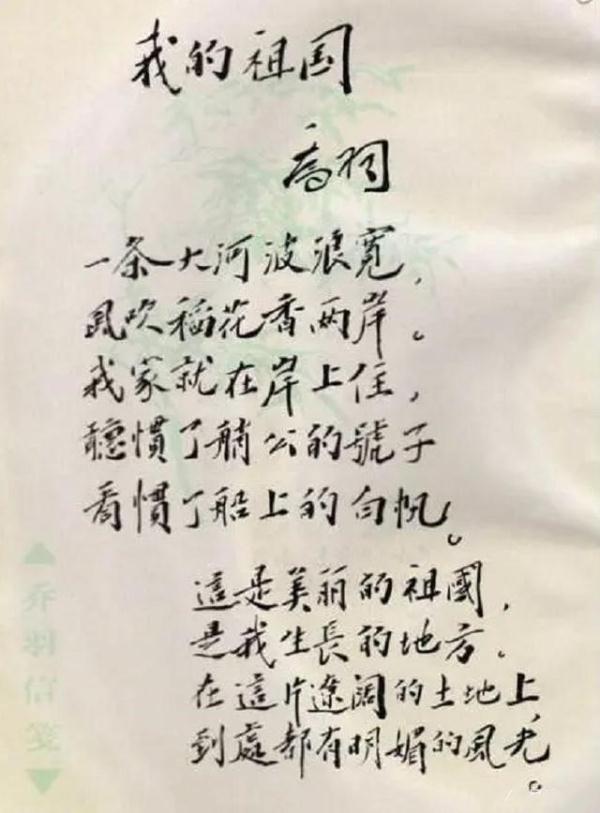 我的祖国
喬羽
一条大河波浪寬，
風吹稻花香两岸。
我家就在岸上住，
聽慣了艄公的號子
看慣了船上的白帆。
這是美丽的祖國，
是我生長的地方。
在這片遼闊的土地上，
到處都有明媚的風光。
乔羽信笺